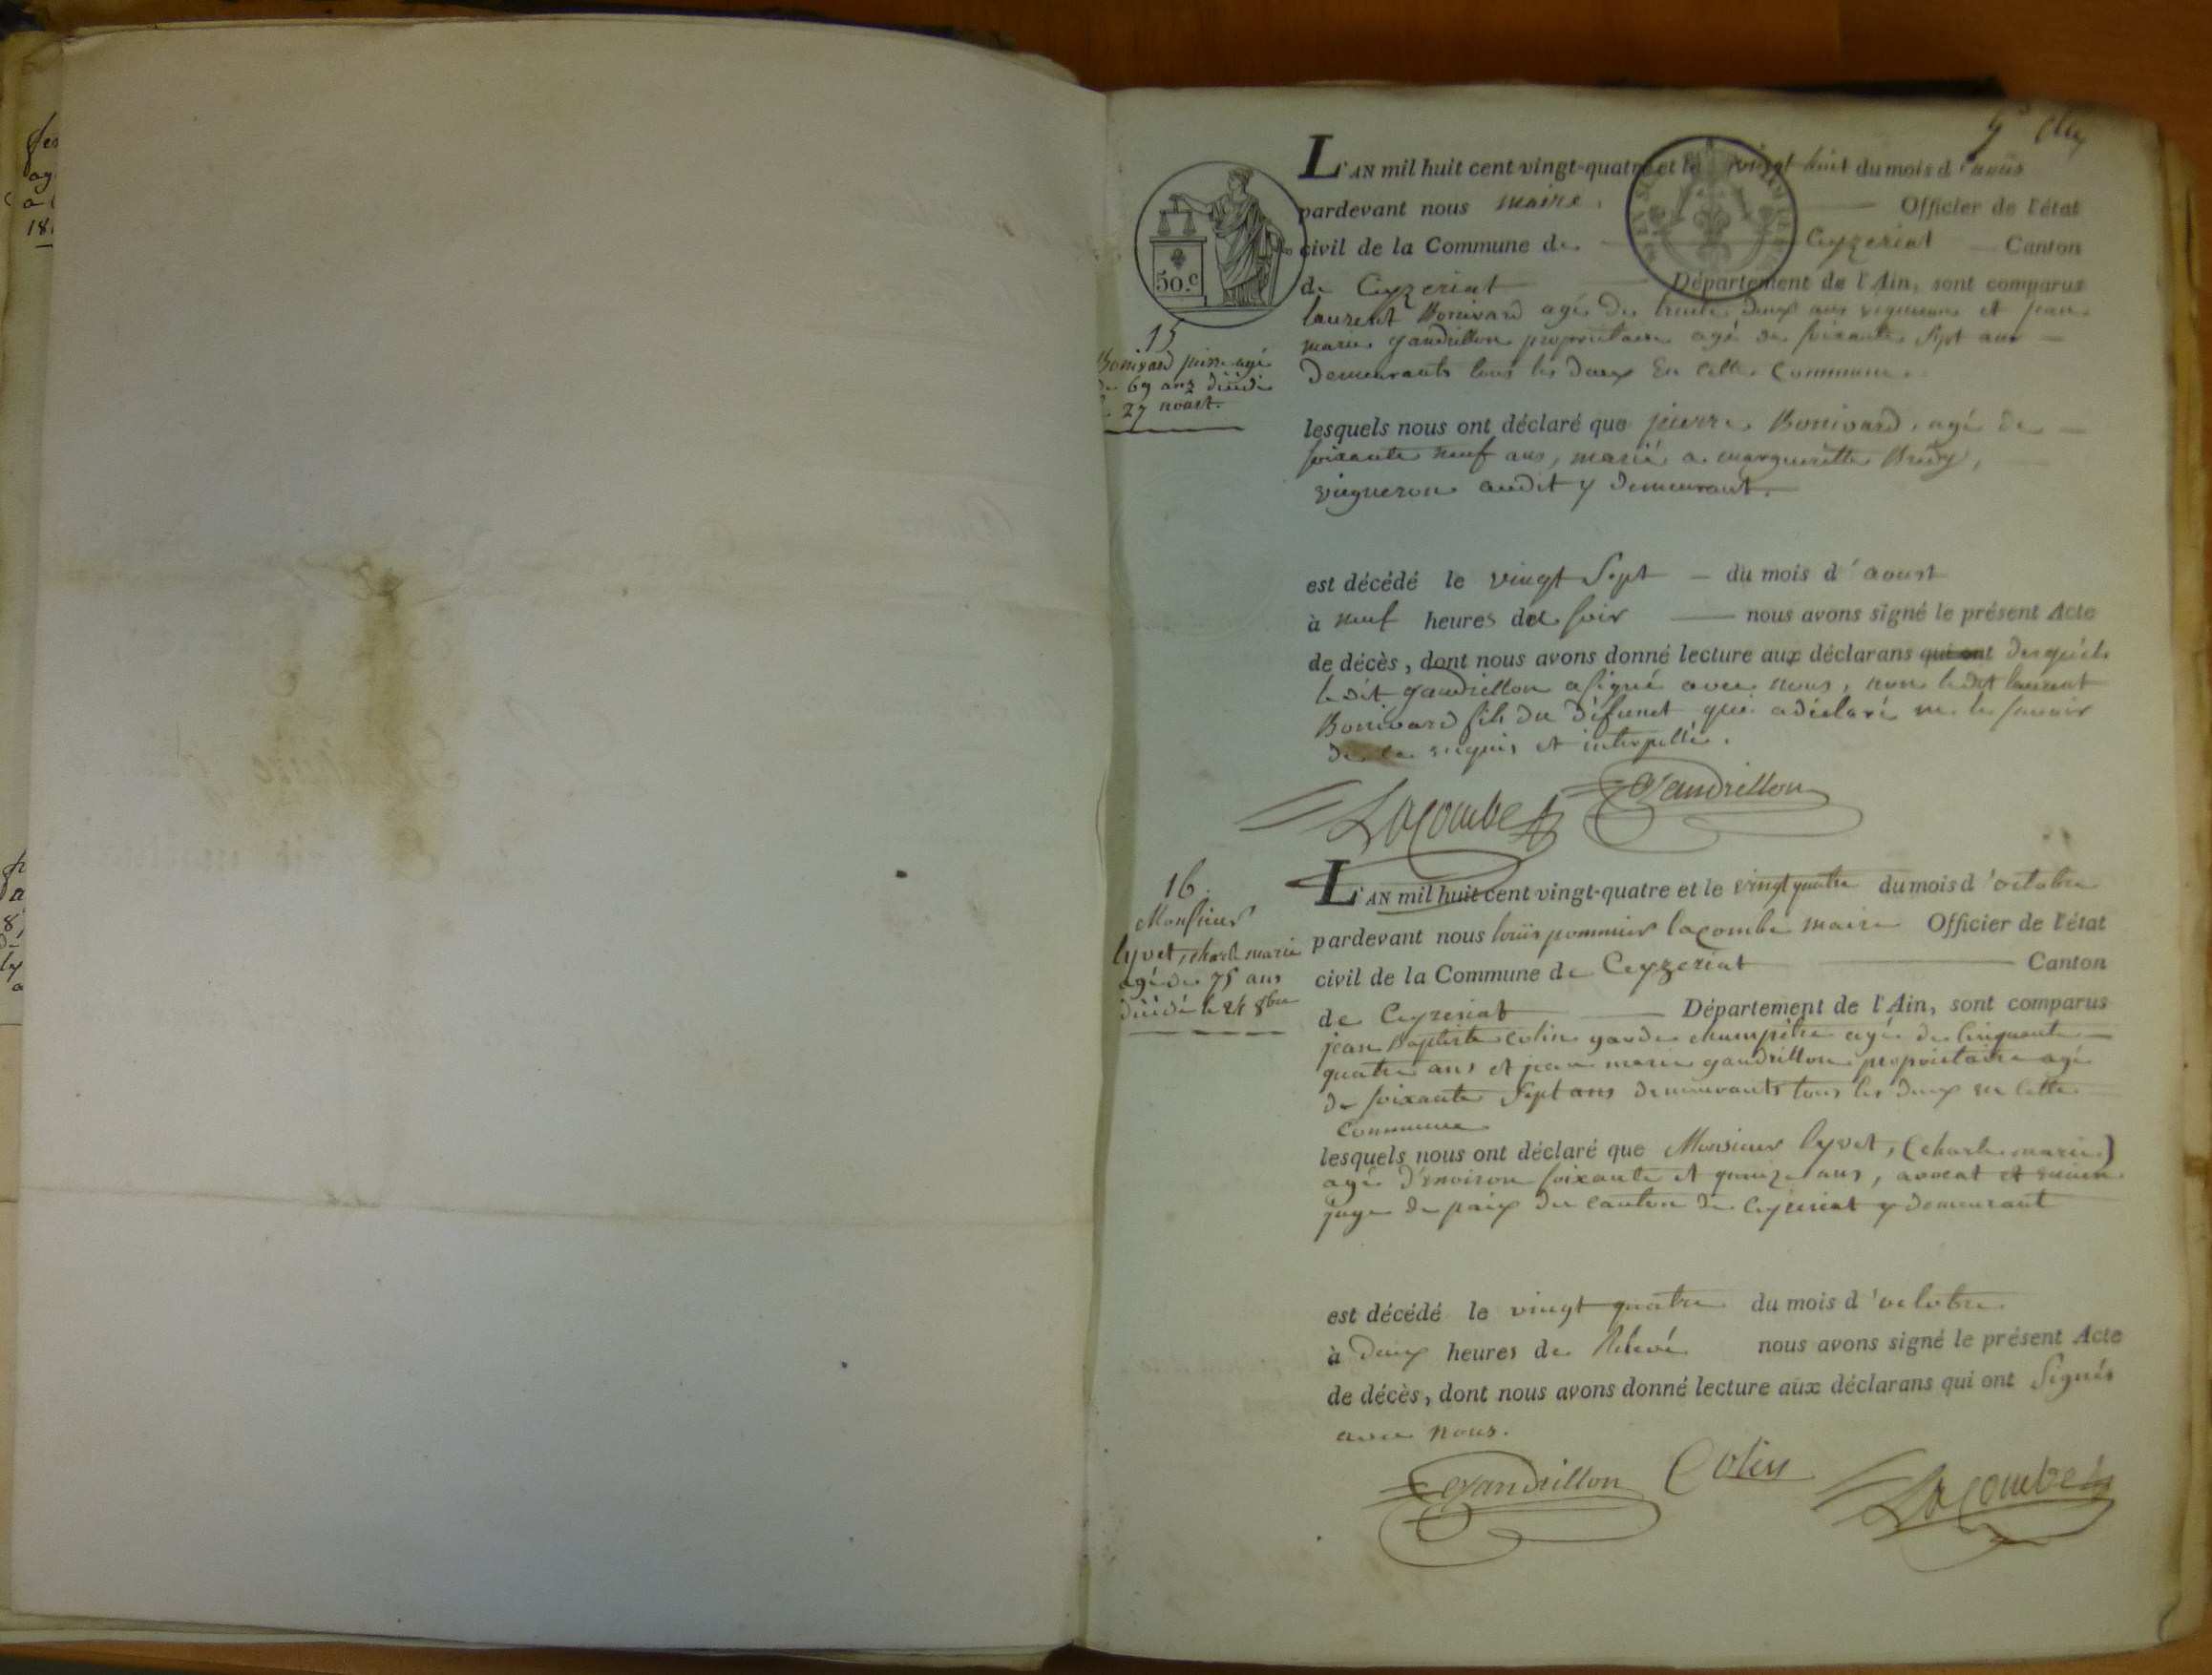 L'AN mil huit cent vingt-quatre et le vingt huit du mois d'aout
pardevant nous maire Officier de l'état
civil de la Commune de Ceyzeriat Canton
de Ceyzeriat Département de l'Ain, sont comparus
laurent Bonivard agé de trente deux ans vigneron et jean
marie gaudrillon propriétaire agé de soixante sept ans
demeurants tous les deux en cette Commune.
50.c
15
Bonivard pierre agé
de 69 ans décédé
le 27 aoust.
lesquels nous ont déclaré que pierre Bonivard, agé de
soixante neuf ans, marié a margueritte
vigneron audit y demeurant.
est décédé le vingt sept du mois d'aoust
à neuf heures du soir nous avons signé le présent Acte
de décès, dont nous avons donné lecture aux déclarans qui ont desquels
le dit gaudrillon a signé avec nous, non ledit laurent
Bonivard fils du défunct qui a déclaré ne le savoir
de ce requis et interpellé.
Lacombe Gaudrillon
16.
Monsieur
lyvet, charle marie
agé de 75 ans
décédé le 24 8bre
L'AN mil huit cent vingt-quatre et le vingt quatre du mois d'octobre
pardevant nous louis pommier lacombe maire Officier de l'état
civil de la Commune de Ceyzeriat Canton
de Ceyzeriat Département de l'Ain, sont comparus
jean Baptiste colin garde champêtre agé de cinquante
quatre ans et jean marie gaudrillon propriétaire agé
de soixante sept ans demeurants tous les deux en cette
commune
lesquels nous ont déclaré que Monsieur lyvet, (charle marie)
agé d'environ soixante et quinze ans, avocat et ancien
juge de paix du canton de Ceyzeriat y demeurant
est décédé le vingt quatre du mois d'octobre
à deux heures de Relevé nous avons signé le présent Acte
de décès, dont nous avons donné lecture aux déclarans qui ont signés
avec nous.
Gaudrillon Colin Lacombe